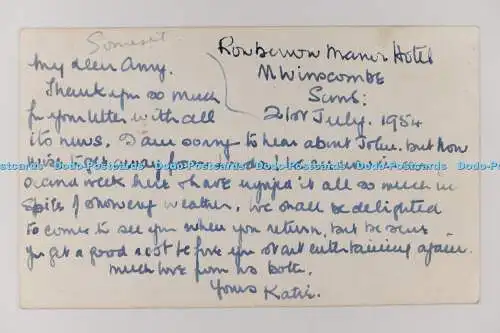 Somerset
Manor Hotel
Winscombe
Soms:
21st July. 1954
My dear Amy.
Thank you so much
for your letter with all
its news. I am sorry to hear about John. but how
Postcards Dodo-Postcards Dodo-Postcards Dodo-Postcards Dodo-Postcards Dodo-Postcards Dodo-Postcards
week here & have enjoyed it all so much in
spite of showery weather. We shall be delighted
to come to see you when you return, but be sure
you get a good rest before you start entertaining again.
Much love from us both.
Yours Katie.